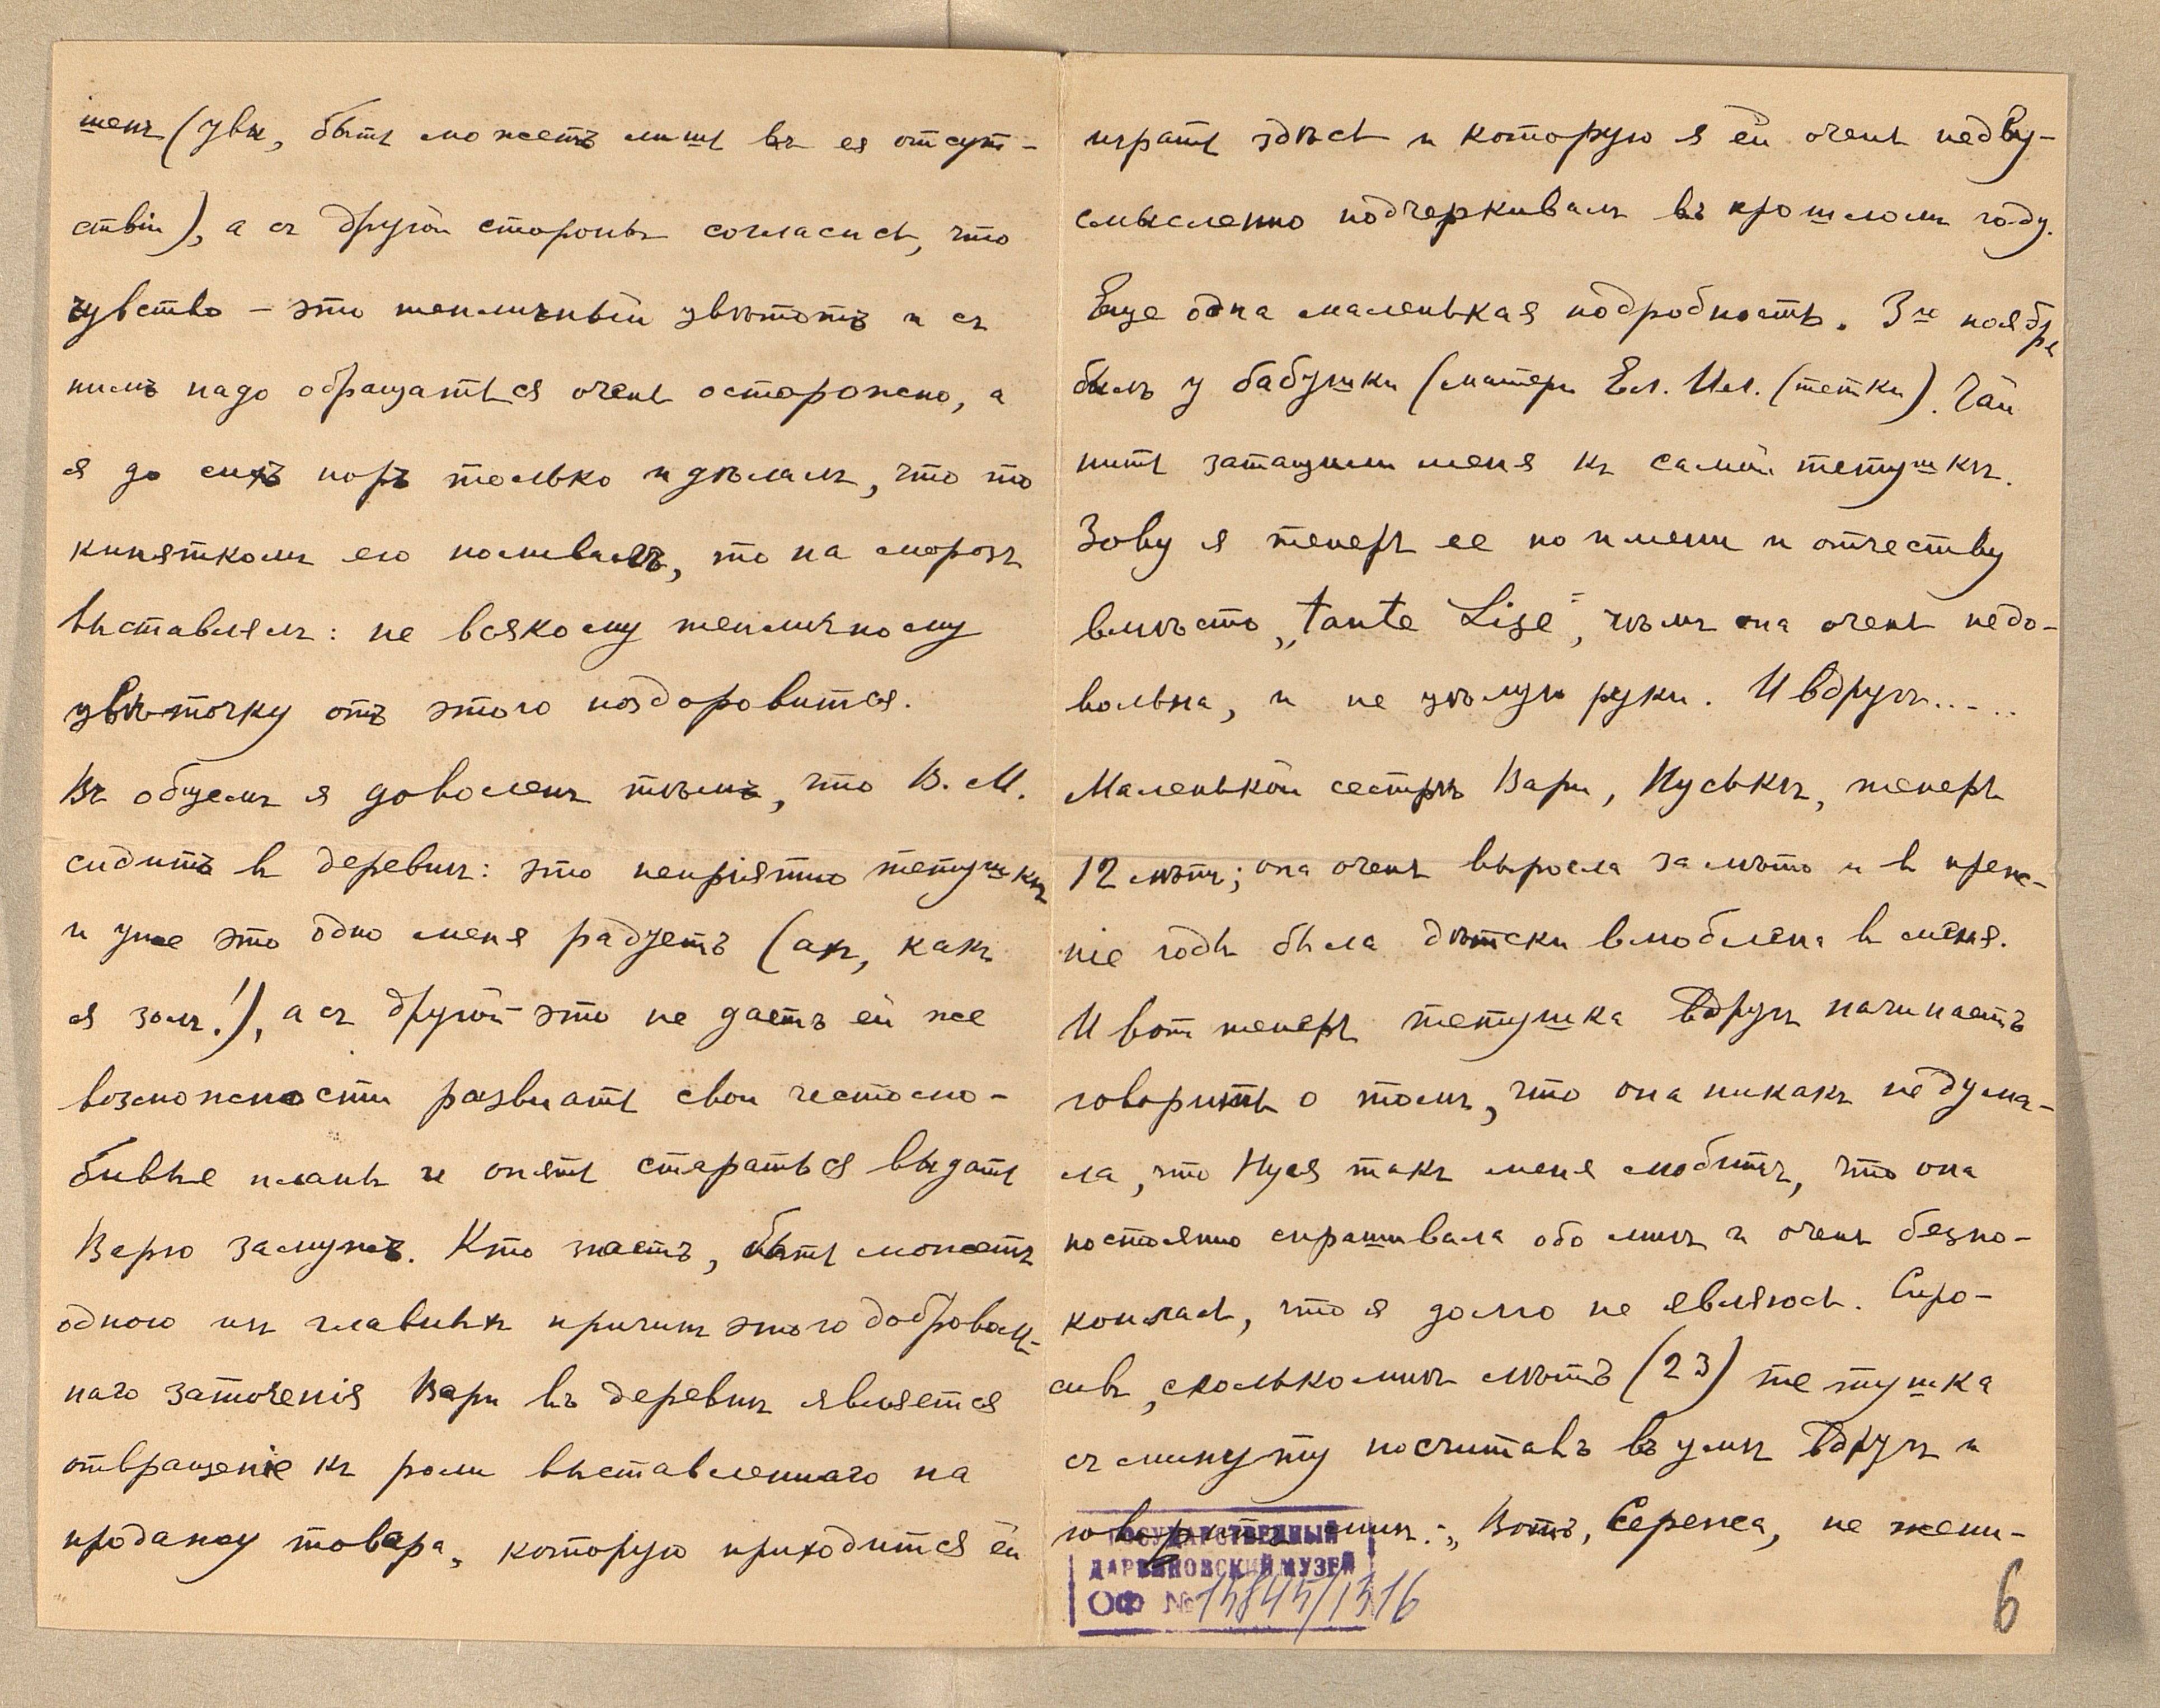 шень (увы, быть можетъ лишь въ ея отсут-
ствіи), а съ другой стороны согласись, что
чувство — это тепличный цвѣтокъ и съ
нимъ надо обращаться очень осторожно, а
я до сихъ поръ только и дѣлалъ, что то
кипяткомъ его поливалъ, то на морозъ
выставлялъ: не всякому тепличному
цвѣточку отъ этого поздоровится.
Въ общемъ я доволенъ тѣмъ, что В. М.
сидитъ въ деревнѣ: это непріятно тетушкѣ
и уже это одно меня радуетъ (ах, какъ
я золъ!), а съ другой — это не даетъ ей же
возможности развивать свои честолю-
бивые планы и опять стараться выдать
Варю замужъ. Кто знаетъ, быть можетъ
одною изъ главныхъ причинъ этого добровол-
наго заточенія Вари въ деревнѣ является
отвращеніе къ роли выставленнаго на
продажу товара, которую приходится ей
играть здѣсь и которую я ей очень недву-
смысленно подчеркивалъ въ прошломъ году.
Еще одна маленькая подробность. 3го ноября
былъ у бабушки (матери Ел. Ил. (тетки). Чай
пить затащили меня къ самой тетушкѣ.
Зову я теперь ее по имени и отчеству
вмѣсто „tante Lise“, чѣмъ она очень недо-
вольна, и не цѣлую руки. И вдругъ.....
Маленькой сестрѣ Вари, Нуськѣ, теперь
12 лѣтъ; она очень выросла за лѣто и въ преж-
ніе годы была дѣтски влюблена въ меня.
И вотъ теперь тетушка вдругъ начинаетъ
говорить о томъ, что она никакъ не дума-
ла, что Нуся такъ меня любитъ, что она
постоянно спрашивала обо мнѣ и очень безпо-
коилась, что я долго не являюсь. Спро-
сивъ, сколько мнѣ лѣтъ (23) тетушка
съ минуту посчитавъ въ умѣ вдругъ и
говоритъ мнѣ: „Вотъ, Сережа, не жени-
ГОСУДАРСТВЕННЫЙ
ДАРВИНОВСКИЙ МУЗЕЙ
ОФ № 13845/1316
6